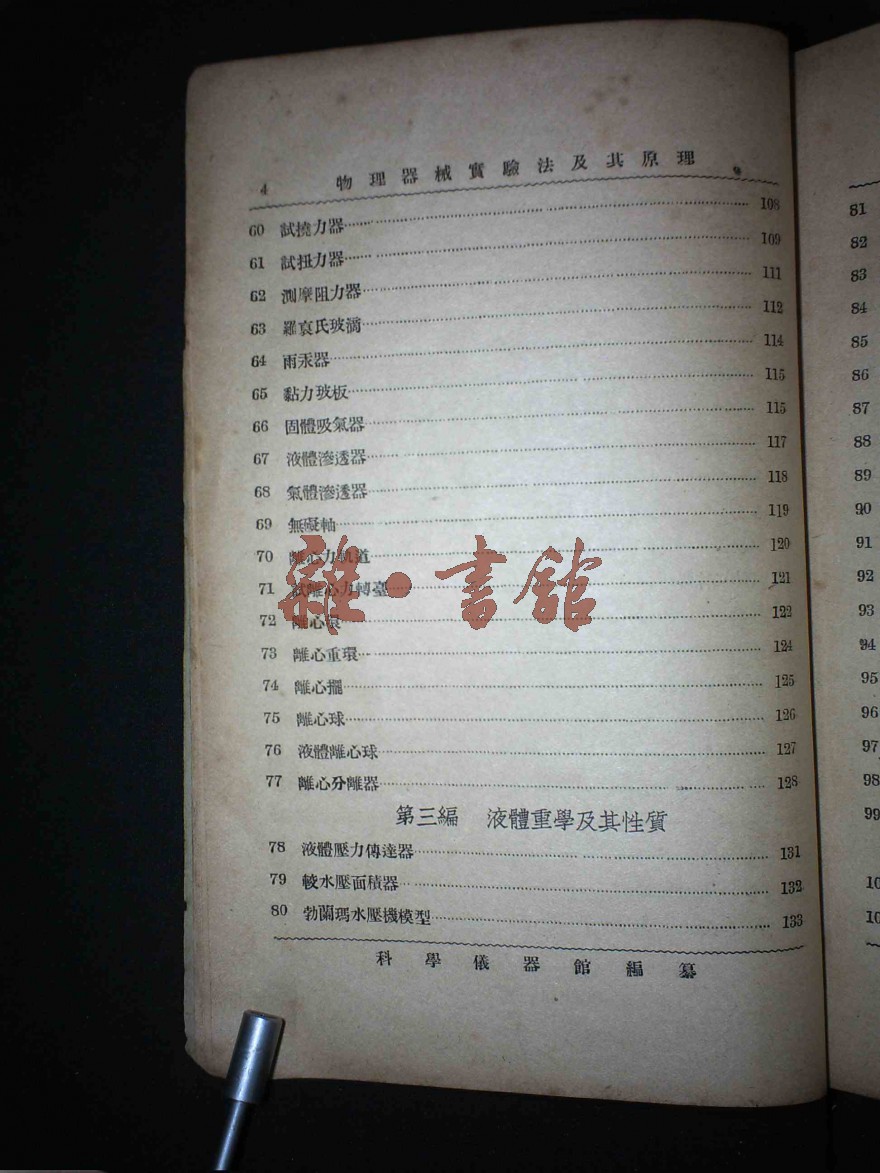 4 物理器械實驗法及其原理
60 試撓力器 108
61 試扭力器 109
62 測摩阻力器 111
63 羅哀氏玻滴 112
64 雨汞器 114
65 黏力玻板 115
66 固體吸氣器 115
67 液體滲透器 117
68 氣體滲透器 118
69 無礙軸 119
70 離心力軌道 120
71 試離心力轉臺 121
72 離心 122
73 離心重環 124
74 離心擺 125
75 離心球 126
76 液體離心球 127
77 離心分離器 128
第三編 液體重學及其性質
78 液體壓力傳達器 131
79 較水壓面積器 132
80 勃蘭瑪水壓機模型 133
科學儀器館編纂
雜·書館
81
82
83
84
85
86
87
88
89
90
91
92
93
94
95
96
97
98
99